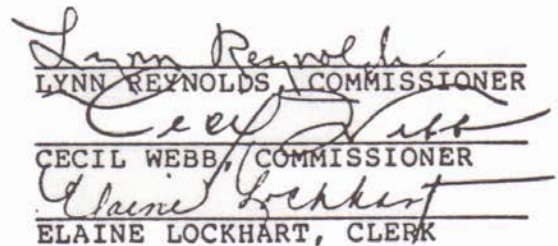 Lynn Reynolds
LYNN REYNOLDS, COMMISSIONER
Cecil Webb
CECIL WEBB, COMMISSIONER
Elaine Lockhart
ELAINE LOCKHART, CLERK